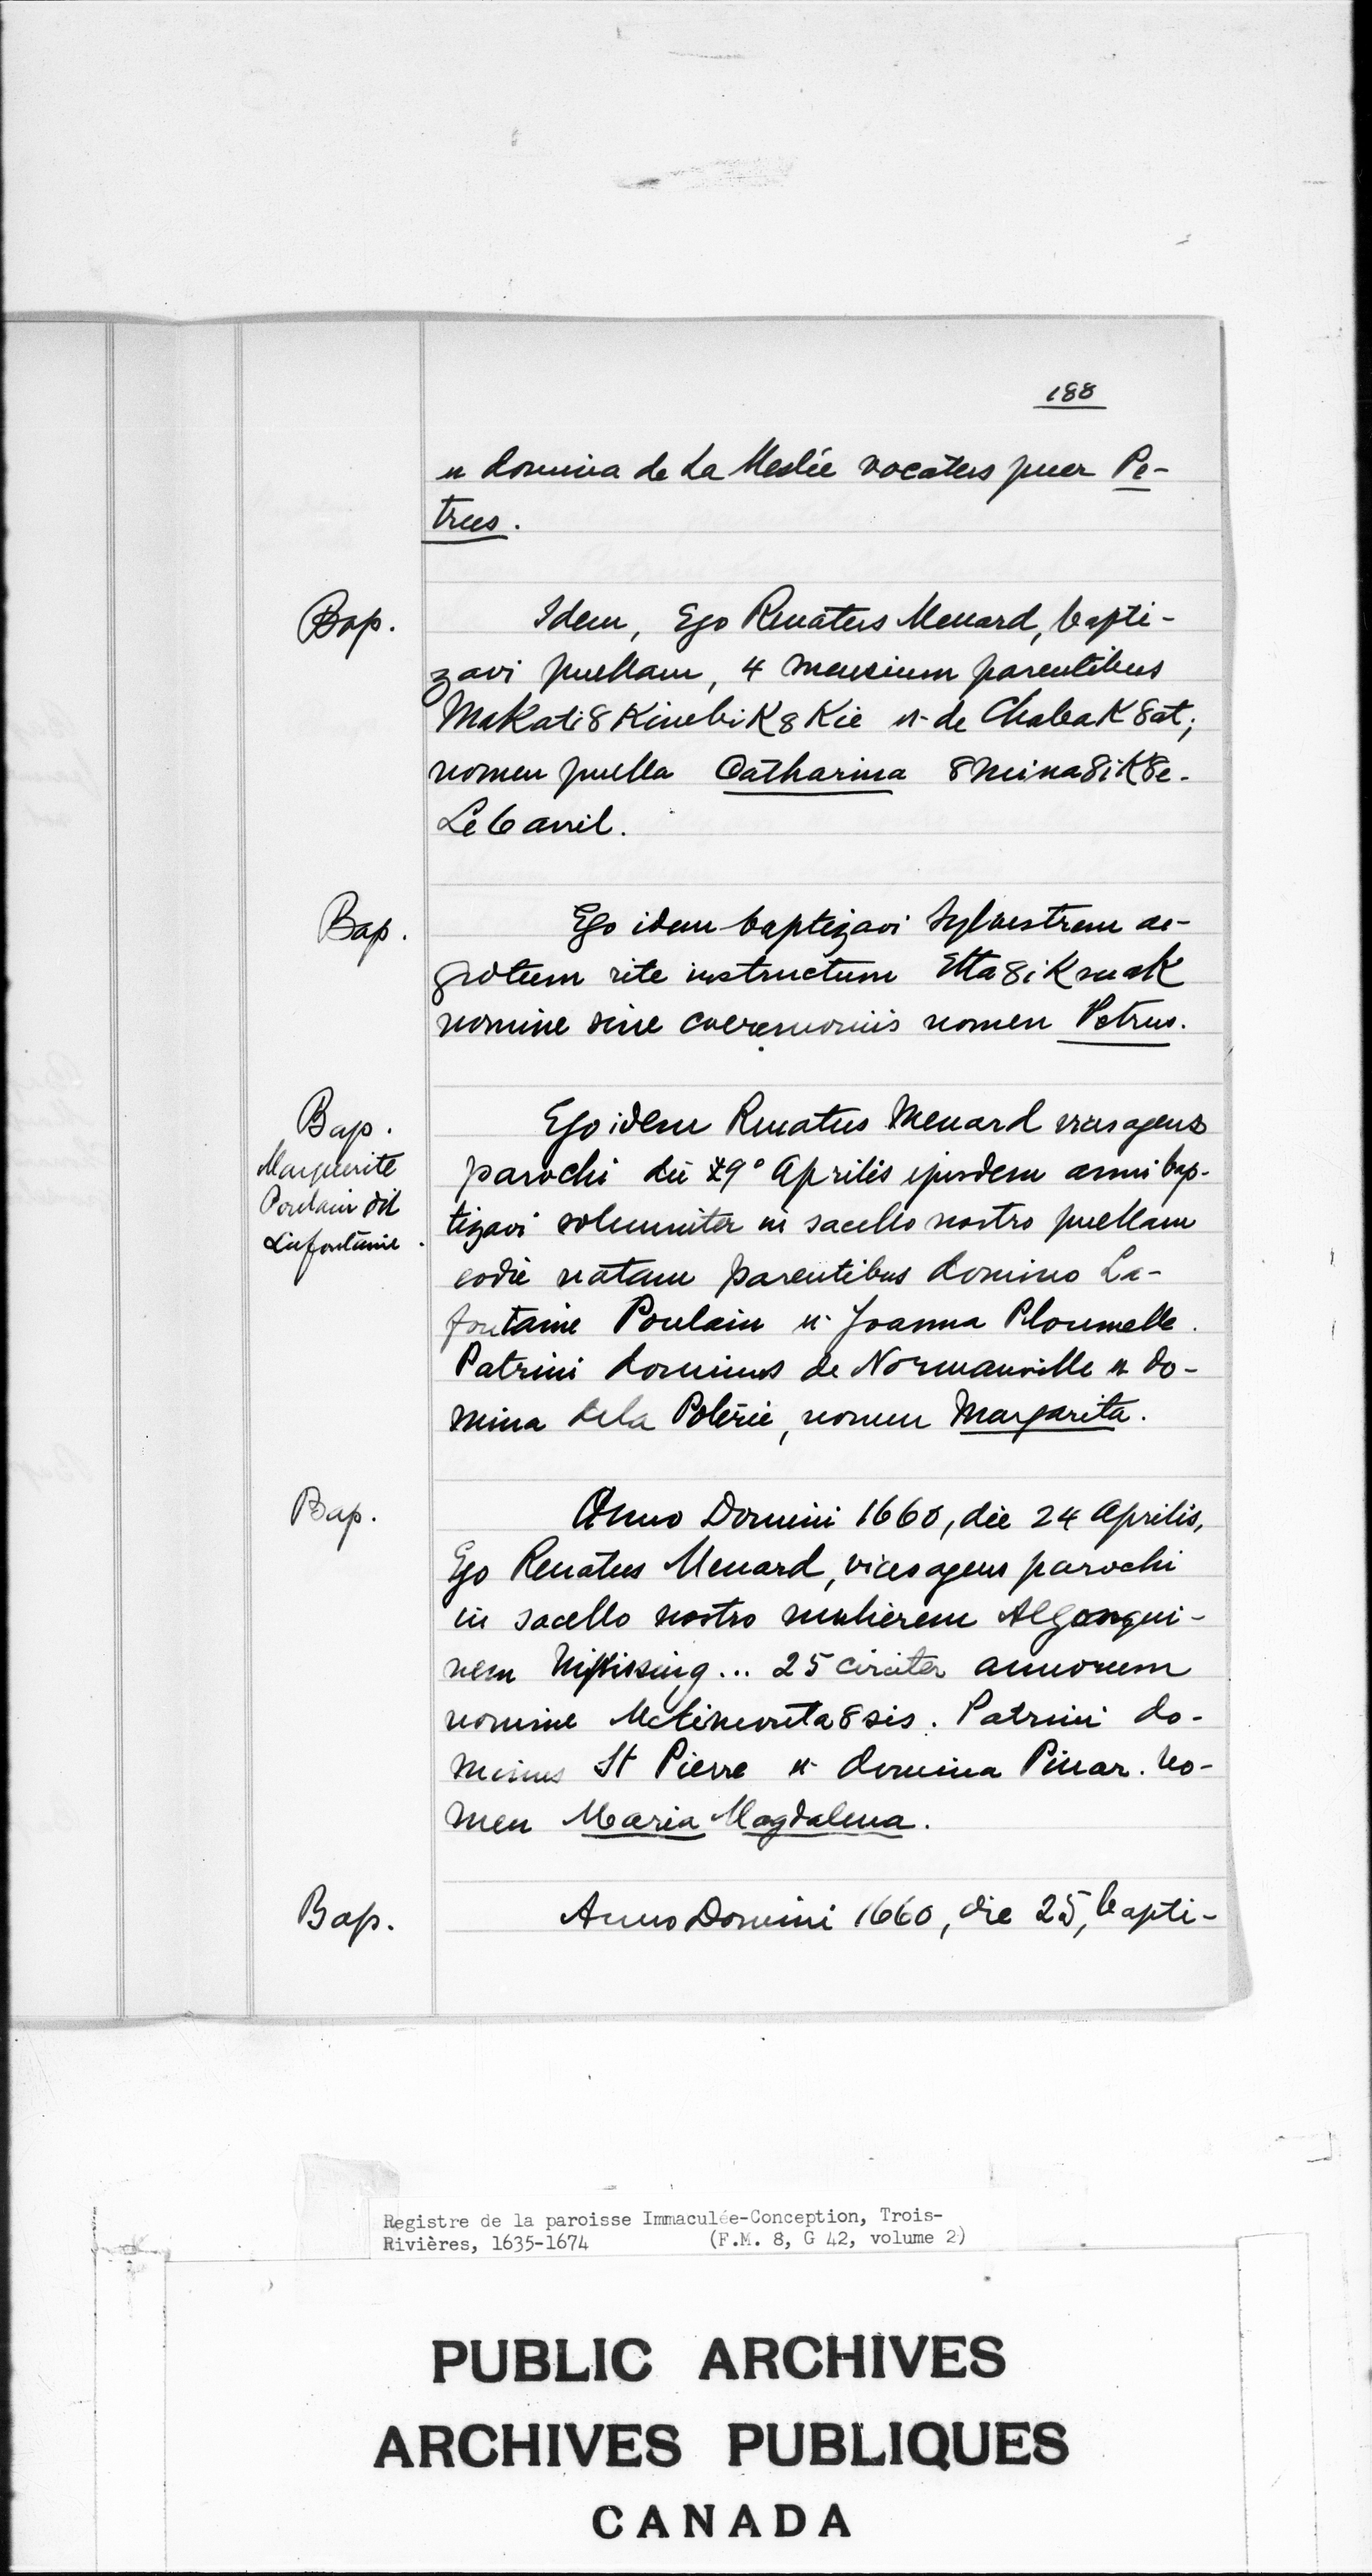 188
et domina de La Meslée vocatus puer Pe-
trus.
Bap.
Idem, Ego Renatus Menard, bapti-
zavi puellam, 4 mensium parentibus
Makati8KinebiK8Kie et de ChabaK8at;
nomen puella Catharina 8mina8iK8e.
Le 6 avril.
Bap.
Ego idem baptizavi Sylvestrem ae-
grotum rite instructum Etta8iK
nomine sine coeremoniis nomen Petrus.
Bap.
Marguerite
Poulain dit
Lafontaine.
Ego idem Renatus Menard vices agens
parochi die 29° Aprilis ejusdem anni bap-
tizavi solemniter in sacello nostro puellam
eodie natam parentibus domino La-
fontaine Poulain et Joanna Ploumelle.
Patrini dominus de Normanville et do-
mina de la Poterie, nomen Margarita.
Bap.
Anno Domini 1660, die 24 Aprilis,
Ego Renatus Menard, vices agens parochi
in sacello nostro mulierem Algonqui-
nem Nipissing... 25 circiter annorum
nomine Metimonta8sis. Patrini do-
minus St Pierre et domina Pinar. No-
men Maria Magdalena.
Bap.
Anno Domini 1660, die 25, bapti-
Registre de la paroisse Immaculée-Conception, Trois-
Rivières, 1635-1674 (F.M. 8, G 42, volume 2)
PUBLIC ARCHIVES
ARCHIVES PUBLIQUES
CANADA